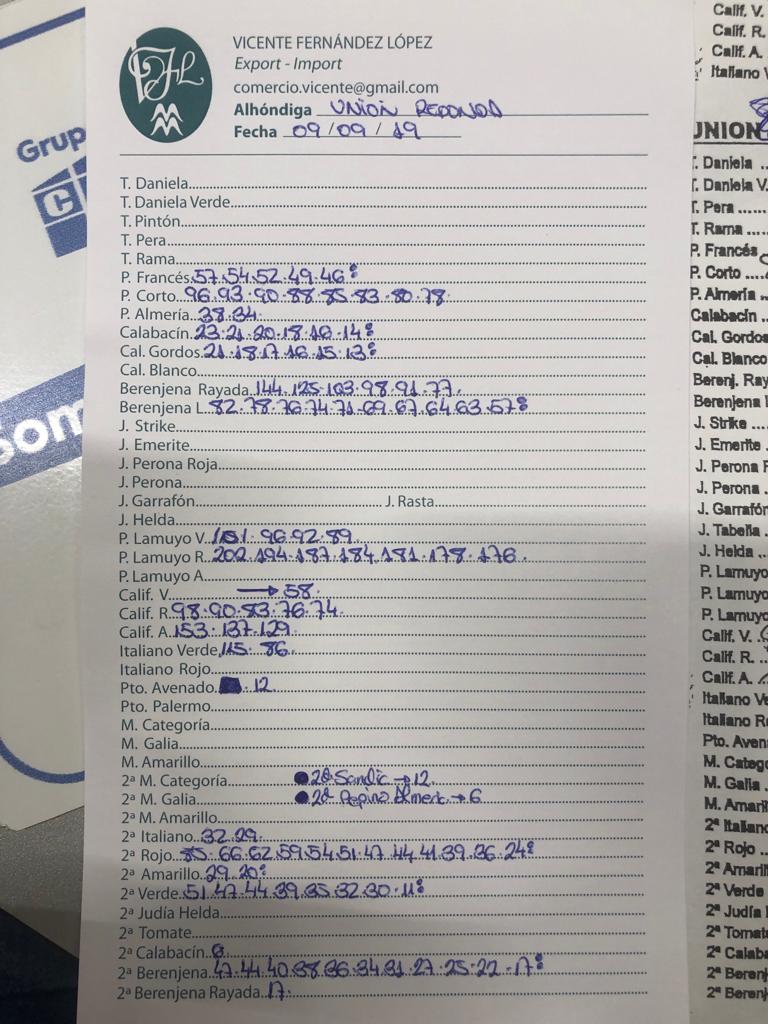 VICENTE FERNÁNDEZ LÓPEZ
Export - Import
comercio.vicente@gmail.com
Alhóndiga UNION REDONDA
Fecha 09/09/19
T. Daniela
T. Daniela Verde
T. Pintón
T. Pera
T. Rama
P. Francés 57.54.52.49.46
P. Corto 96.93.90.88.85.83.80.78
P. Almería 38.34
Calabacín 23.21.20.18.16.14
Cal. Gordos 21.18.17.16.15.13
Cal. Blanco
Berenjena Rayada 144.125.103.98.91.77
Berenjena L. 82.78.76.74.71.69.67.64.63.57
J. Strike
J. Emerite
J. Perona Roja
J. Perona
J. Garrafón J. Rasta
J. Helda
P. Lamuyo V. 101.96.92.89
P. Lamuyo R. 202.194.187.184.181.178.176
P. Lamuyo A
Calif. V. → 58
Calif. R. 98.90.83.76.74
Calif. A. 153.137.129
Italiano Verde 115.86
Italiano Rojo
Pto. Avenado 12
Pto. Palermo
M. Categoría
M. Galia
M. Amarillo
2ª M. Categoría 2ª Sandic → 12
2ª M. Galia 2ª Pepino Almeri → 6
2ª M. Amarillo
2ª Italiano 32.29
2ª Rojo 85.66.62.59.54.51.47.44.41.39.36.24
2ª Amarillo 29.20
2ª Verde 51.47.44.39.35.32.30.11
2ª Judía Helda
2ª Tomate
2ª Calabacín
2ª Berenjena 47.44.40.38.36.34.31.27.25.22.17
2ª Berenjena Rayada 17
Grup
C
Som
Calif. V.
Calif. R.
Calif. A.
Italiano
UNION
T. Daniela
T. Daniela V.
T. Pera
T. Rama
P. Francés
P. Corto
P. Almería
Calabacín
Cal. Gordos
Cal. Blanco
Berenj. Ray
Berenjena
J. Strike
J. Emerite
J. Perona
J. Perona
J. Garrafón
J. Tabella
J. Helda
P. Lamuyo
P. Lamuyo
P. Lamuyo
Calif. V.
Calif. R.
Calif. A.
Italiano Ve
Italiano Ro
Pto. Aven
M. Catego
M. Galia
M. Amari
2ª Italiano
2ª Rojo
2ª Amaril
2ª Verde
2ª Judía
2ª Tomat
2ª Calaba
2ª Berenj
2ª Beren